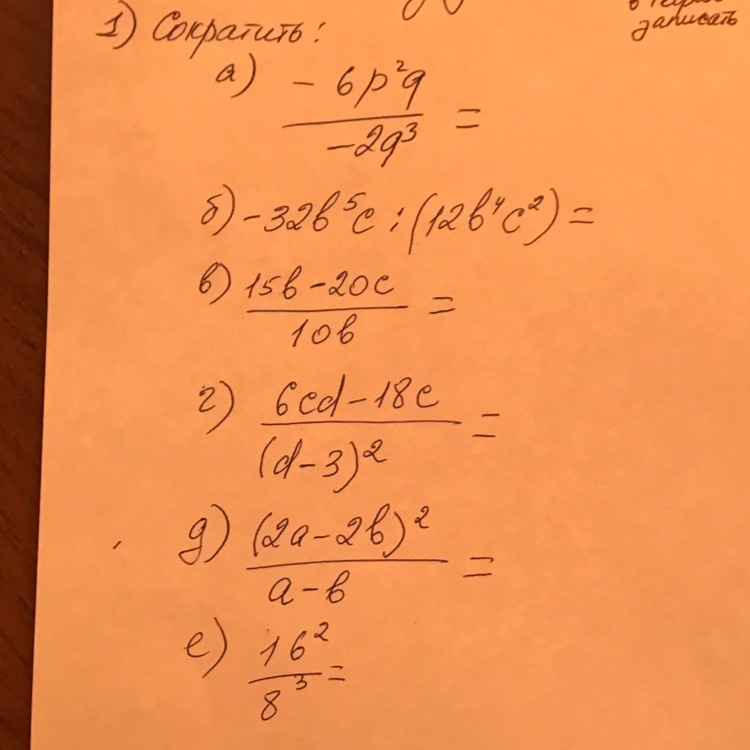 записать
1) Сократить:
а) -6p²q / -2q³ =
б) -32b⁵c : (12b⁴c²) =
в) 15b-20c / 10b =
г) 6cd-18c / (d-3)² =
д) (2a-2b)² / a-b =
е) 16² / 8³ =